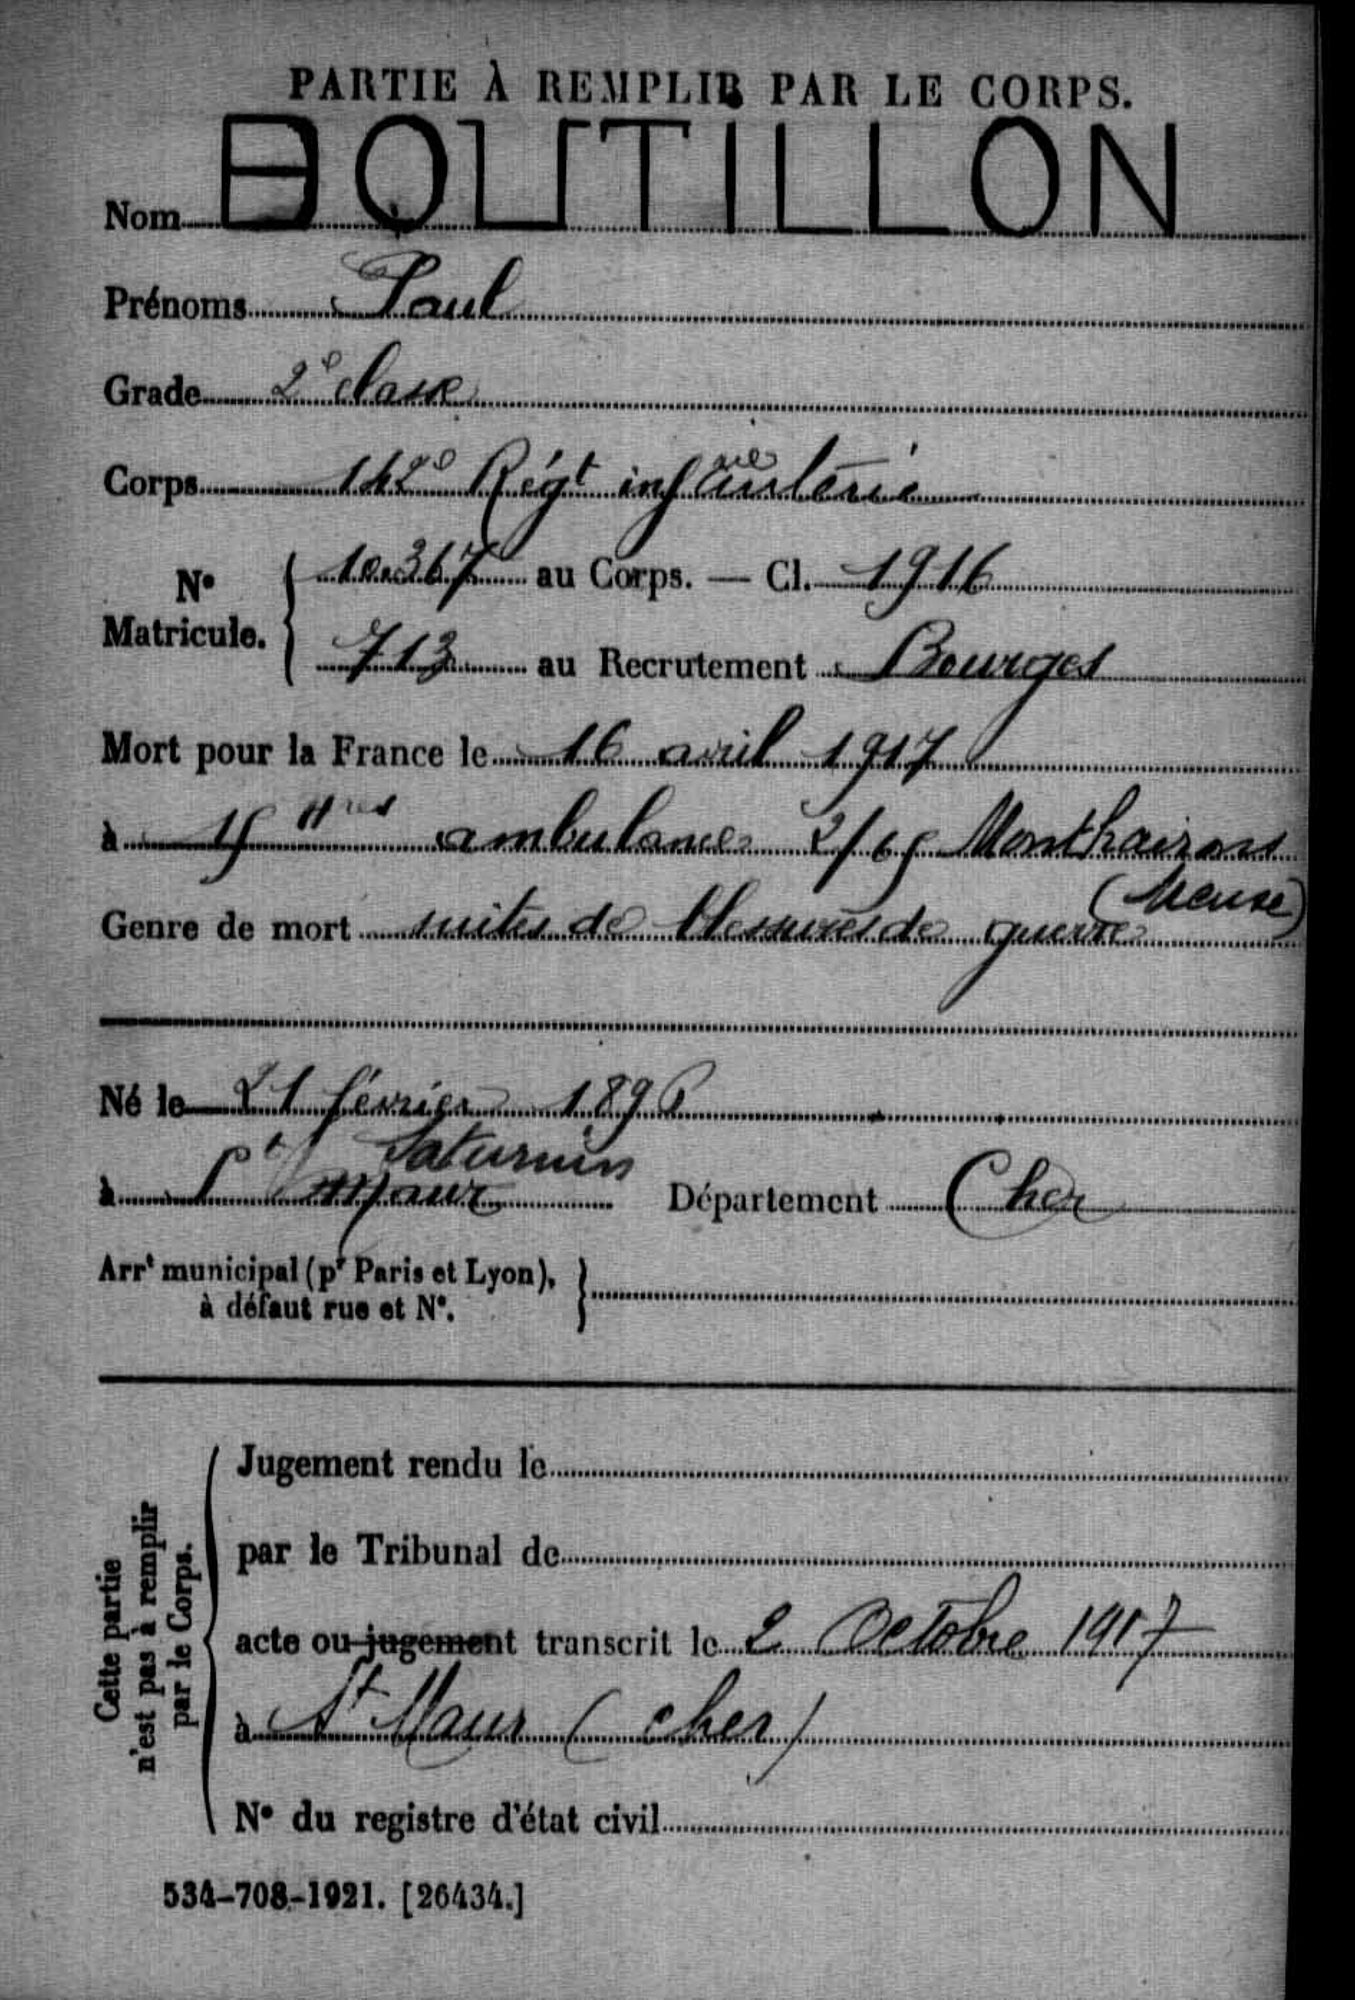 PARTIE À REMPLIR PAR LE CORPS.
Nom BOUTILLON
Prénoms Paul
Grade 2e classe
Corps 142e Régt infanterie
No Matricule. 10.367 au Corps. — Cl. 1916
713 au Recrutement Bourges
Mort pour la France le 16 avril 1917
à ambulance Monthairons
(Meuse)
Genre de mort suites de blessures de guerre
Né le 21 février 1896
à St Saturnin Département Cher
Arrt municipal (pr Paris et Lyon),
à défaut rue et No.
Cette partie
n'est pas à remplir
par le Corps.
Jugement rendu le
par le Tribunal de
acte ou jugement transcrit le 2 Octobre 1917
à St Maur (cher)
No du registre d'état civil
534-708-1921. [26434.]